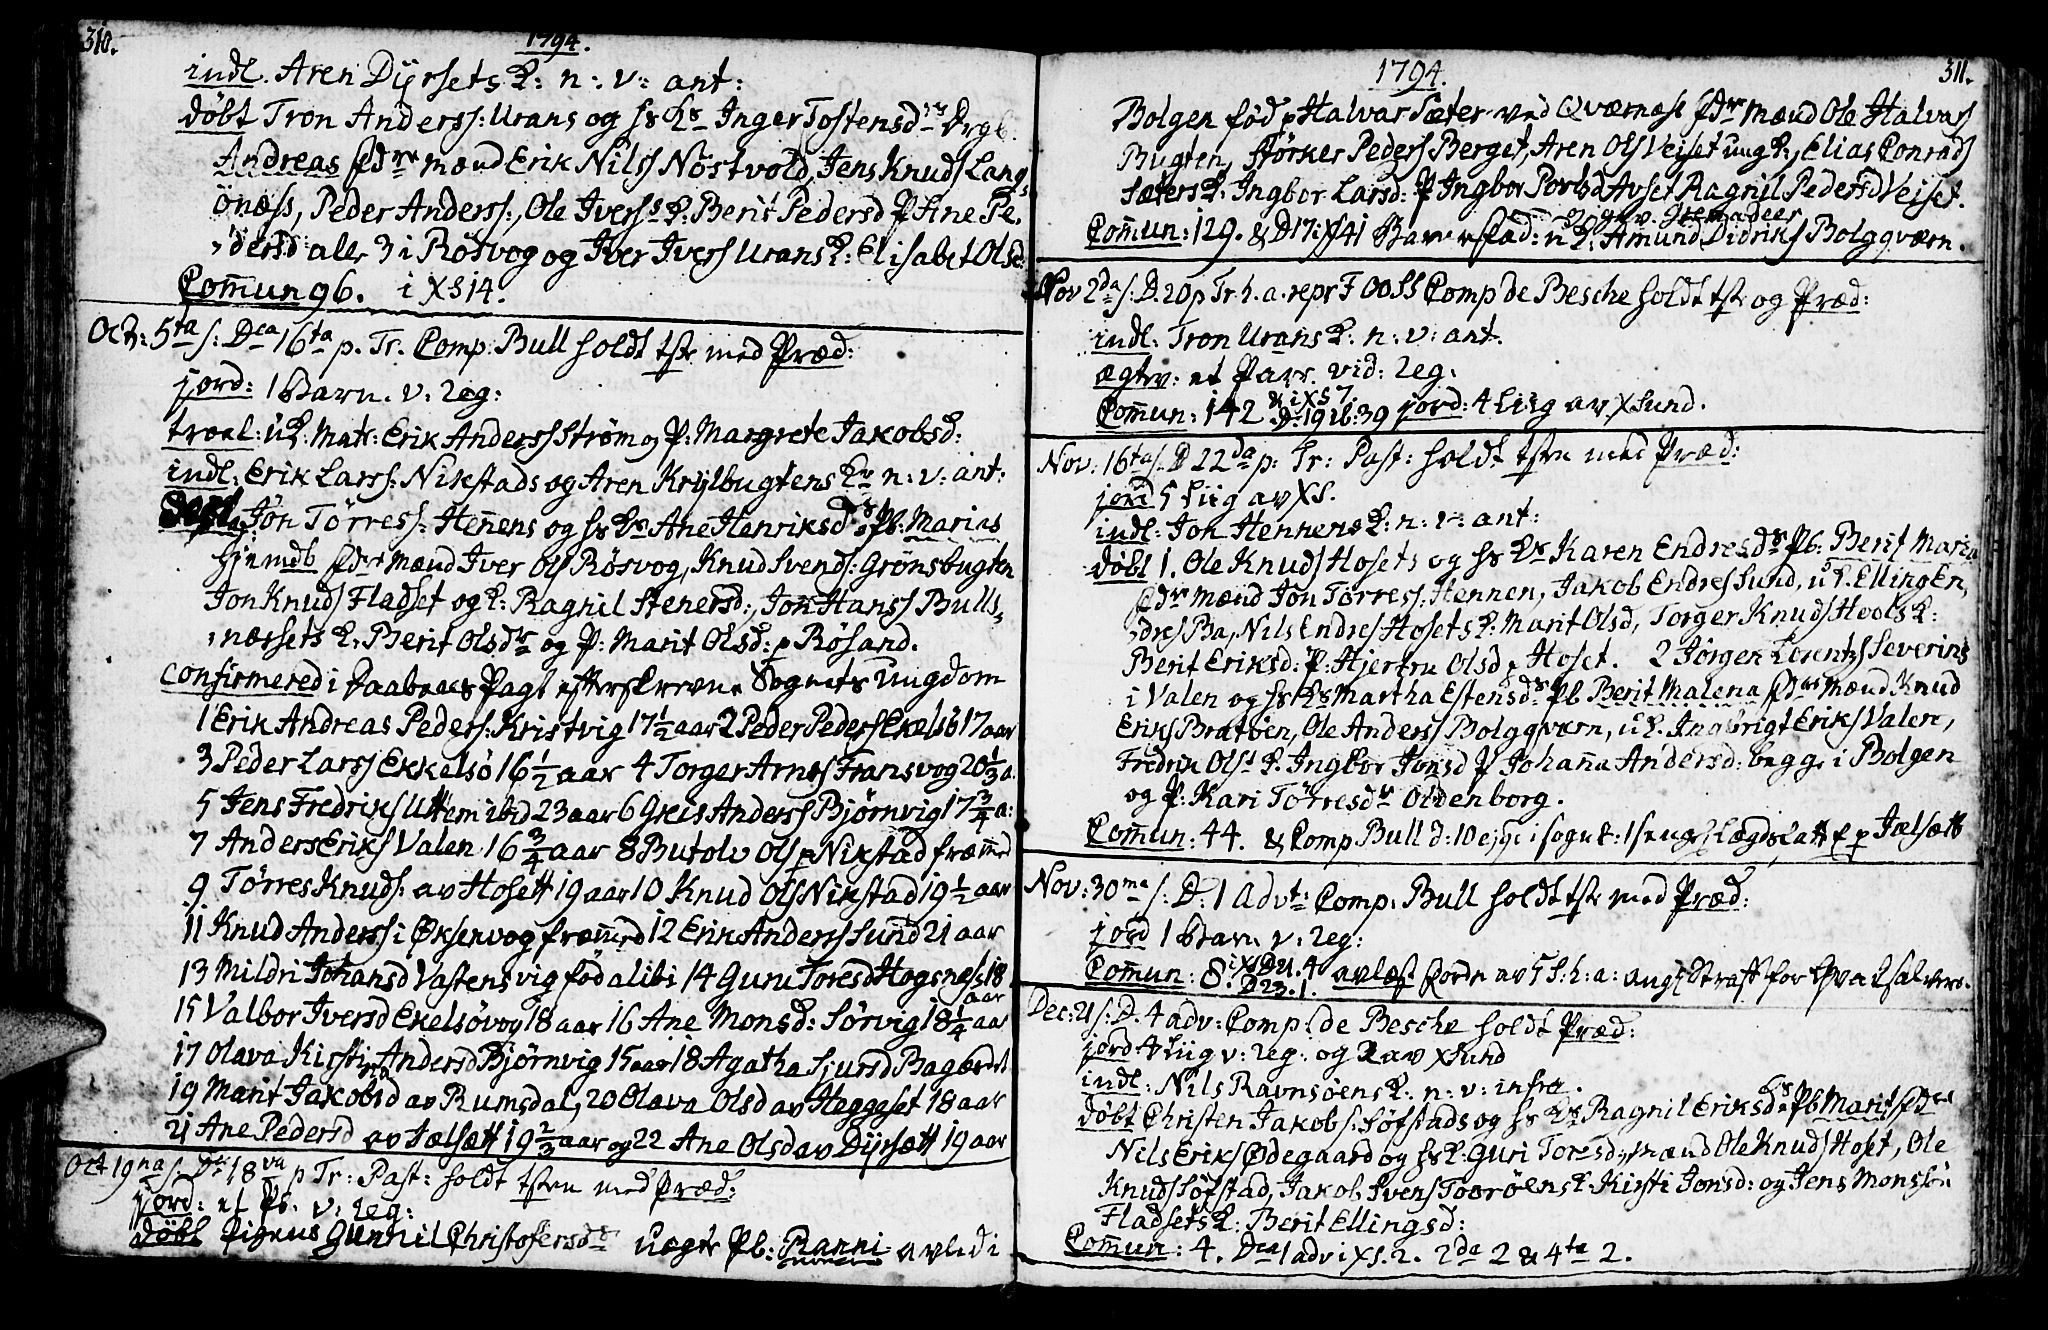 310.
1794.
indl. Aren Dÿrsets K: n: v: ant:
döbt Tron Anderss: Urans og hs Ks Inger Tostensd Drgb.
Andreas mænd Erik Nilss Nöstvold, Jens Knuds Lang
önæss, Peder Anderss:, Ole Iverss K: Berit Pedersd P Ane Pe,
dersd alle 3 i Rösvog og Iver Ivers Urans K: Elisabet Olsd
Com̄un 96. i XS 14.
Oct: 5ta s: Dca 16ta p. Tr. Comp. Bull holdt med Præd:
jord: 1 Barn. v: Leg:
Erik Anders Ström og P: Margrete Jakobsd:
indl: Erik Larss: Nikstads og Aren Krÿlbugtens n: v: ant:
Jön Törress: Hen̄ens og hs Ks Ane Henriksd Pb: Marias
hiemdb mænd Iver Ols Rösvog, Knud Svends: Grönsbugten
Jon Knuds Fladset og K: Ragnil Stenersd:, Jon Hanss Bulls
næssets K: Berit Olsdr og P: Marit Olsd: p Rösand.
confirmered i Daabens Pagt Sognets Ungdom
1 Erik Andreas Peders: Kristvig 17 1/2 aar 2 Peder Peders Ekelsö 17 aar
3 Peder Larss Ekkelsö 16 1/2 aar 4 Torger Arness Fransvog 20 1/3 a:
5 Jens Fredriks Uttem ibid 23 aar 6 Greis Anderss Björnvig 17 3/4 a:
7 Anders Eriks Valen 16 3/4 aar 8 Butolv Ols p Nikstad
9 Törres Knuds: av Hosett 19 aar 10 Knud Ols Nikstad 19 1/2 aar
11 Knud Anderss i Öksenvog 12 Erik Anderss Sund 21 aar
13 Mildri Johansd Vastensvig föd alibi 14 Guru Toresd Hogsnæs 18
aar
15 Valbor Iversd Ekelsövog 18 aar 16 Ane Monsd: Sörvig 18 1/4 aar
17 Olava Kirstina Andersd Björnvig 15 aar 18 Agatha Sjursd Bagerdet
19 Marit Jakobsd av Rumsdal, 20 Olava Olsd av Heggeset 18 aar
21 Ane Pedersd av Jælsætt 19 2/3 aar og 22 Ane Olsd av Dÿrsætt 19 aar
Oct 19na s: 18va p Tr: Past: holdt med Præd:
jord: et Pb. v: Leg:
döbt Pigens Gunnil Christofersd uægte Pb: Ranni avled i
1794.
311.
Bolgen föd p Halvar Sæter ved Qværnæs mænd Ole Halvars
Bugten, Störker Peders Berget, Aren Ols Veiset ung K:, Elias Conrads
Sæters K: Ingbor Larsd: P Ingbor Avset Ragnil Pedersd Veiset.
Com̄un: 129. & D17: Amund Didriks Bolgqværn.
Nov 2da s: D. 20 p Tr. h. a. repr F OOSS Comp de Besche holdt og Præd:
indl: Tron Urans K: n: v: ant.
ægtev: et Parr. vid: Leg.
& i XS 7.
Com̄un: 142 D: 19 jord: 4 Liig av XSund.
Nov: 16ta s. D 22da p: Tr: Past: holdt med Præd:
jord 5 Liig av XS.
indl: Jon Hennens K: n: v: ant:
döbt 1. Ole Knuds Hosets og hs Ks Karen Endresds Pb: Berit Maria
mænd Jön Törress: Hennen, Jakob Endres Sund, u K. Elling En,
dres Ba, Nils Endres Hosets K: Marit Olsd, Torger Knuds Heols K:
Berit Eriksd: P: Hjertru Olsd p Hoset. 2 Jörgen Lorents Severins
i Valen og hs Ks Martha Estensds Pb Berit Malena mænd Knud
Eriks Bratöen, Ole Anders Bolgqværn, u K. Ingbrigt Eriks Valen,
Fredrik Ols K. Ingbor Jonsd P Johan̄a Andersd: begge i Bolgen
og P: Kari Törresdr Oldenborg.
Com̄un: 44. & Comp Bull d: 10 i sognet: p Jælsætt
Nov: 30ma s: D: 1 Advt: Comp. Bull holdt med Præd:
jord 1 Barn v: Leg:
Com̄un: 8. avlæst Fordn av 5 S. h: a:
Dec: 21 s: D. 4 adv: Comp: de Besche holdt Præd:
jord 4 Liig v: Leg: og 2 av XSund
indl: Nils Ravnsöens K: n: v: infra.
döbt Christen Jakobs: Söfstads og hs Ks Ragnil Eriksds Pb Marit
Nils Eriks Ödegaard og hs K: Guri Toresd:, mænd Ole Knuds Hoset, Ole
Knuds Söfstad, Jakob Svens K: Kirsti Jonsd: og Jens Monss
Fladsets K: Berit Ellingsd:
Com̄un: 4. Dca 1 adv i XS. 2. 2da 2 & 4ta 2.